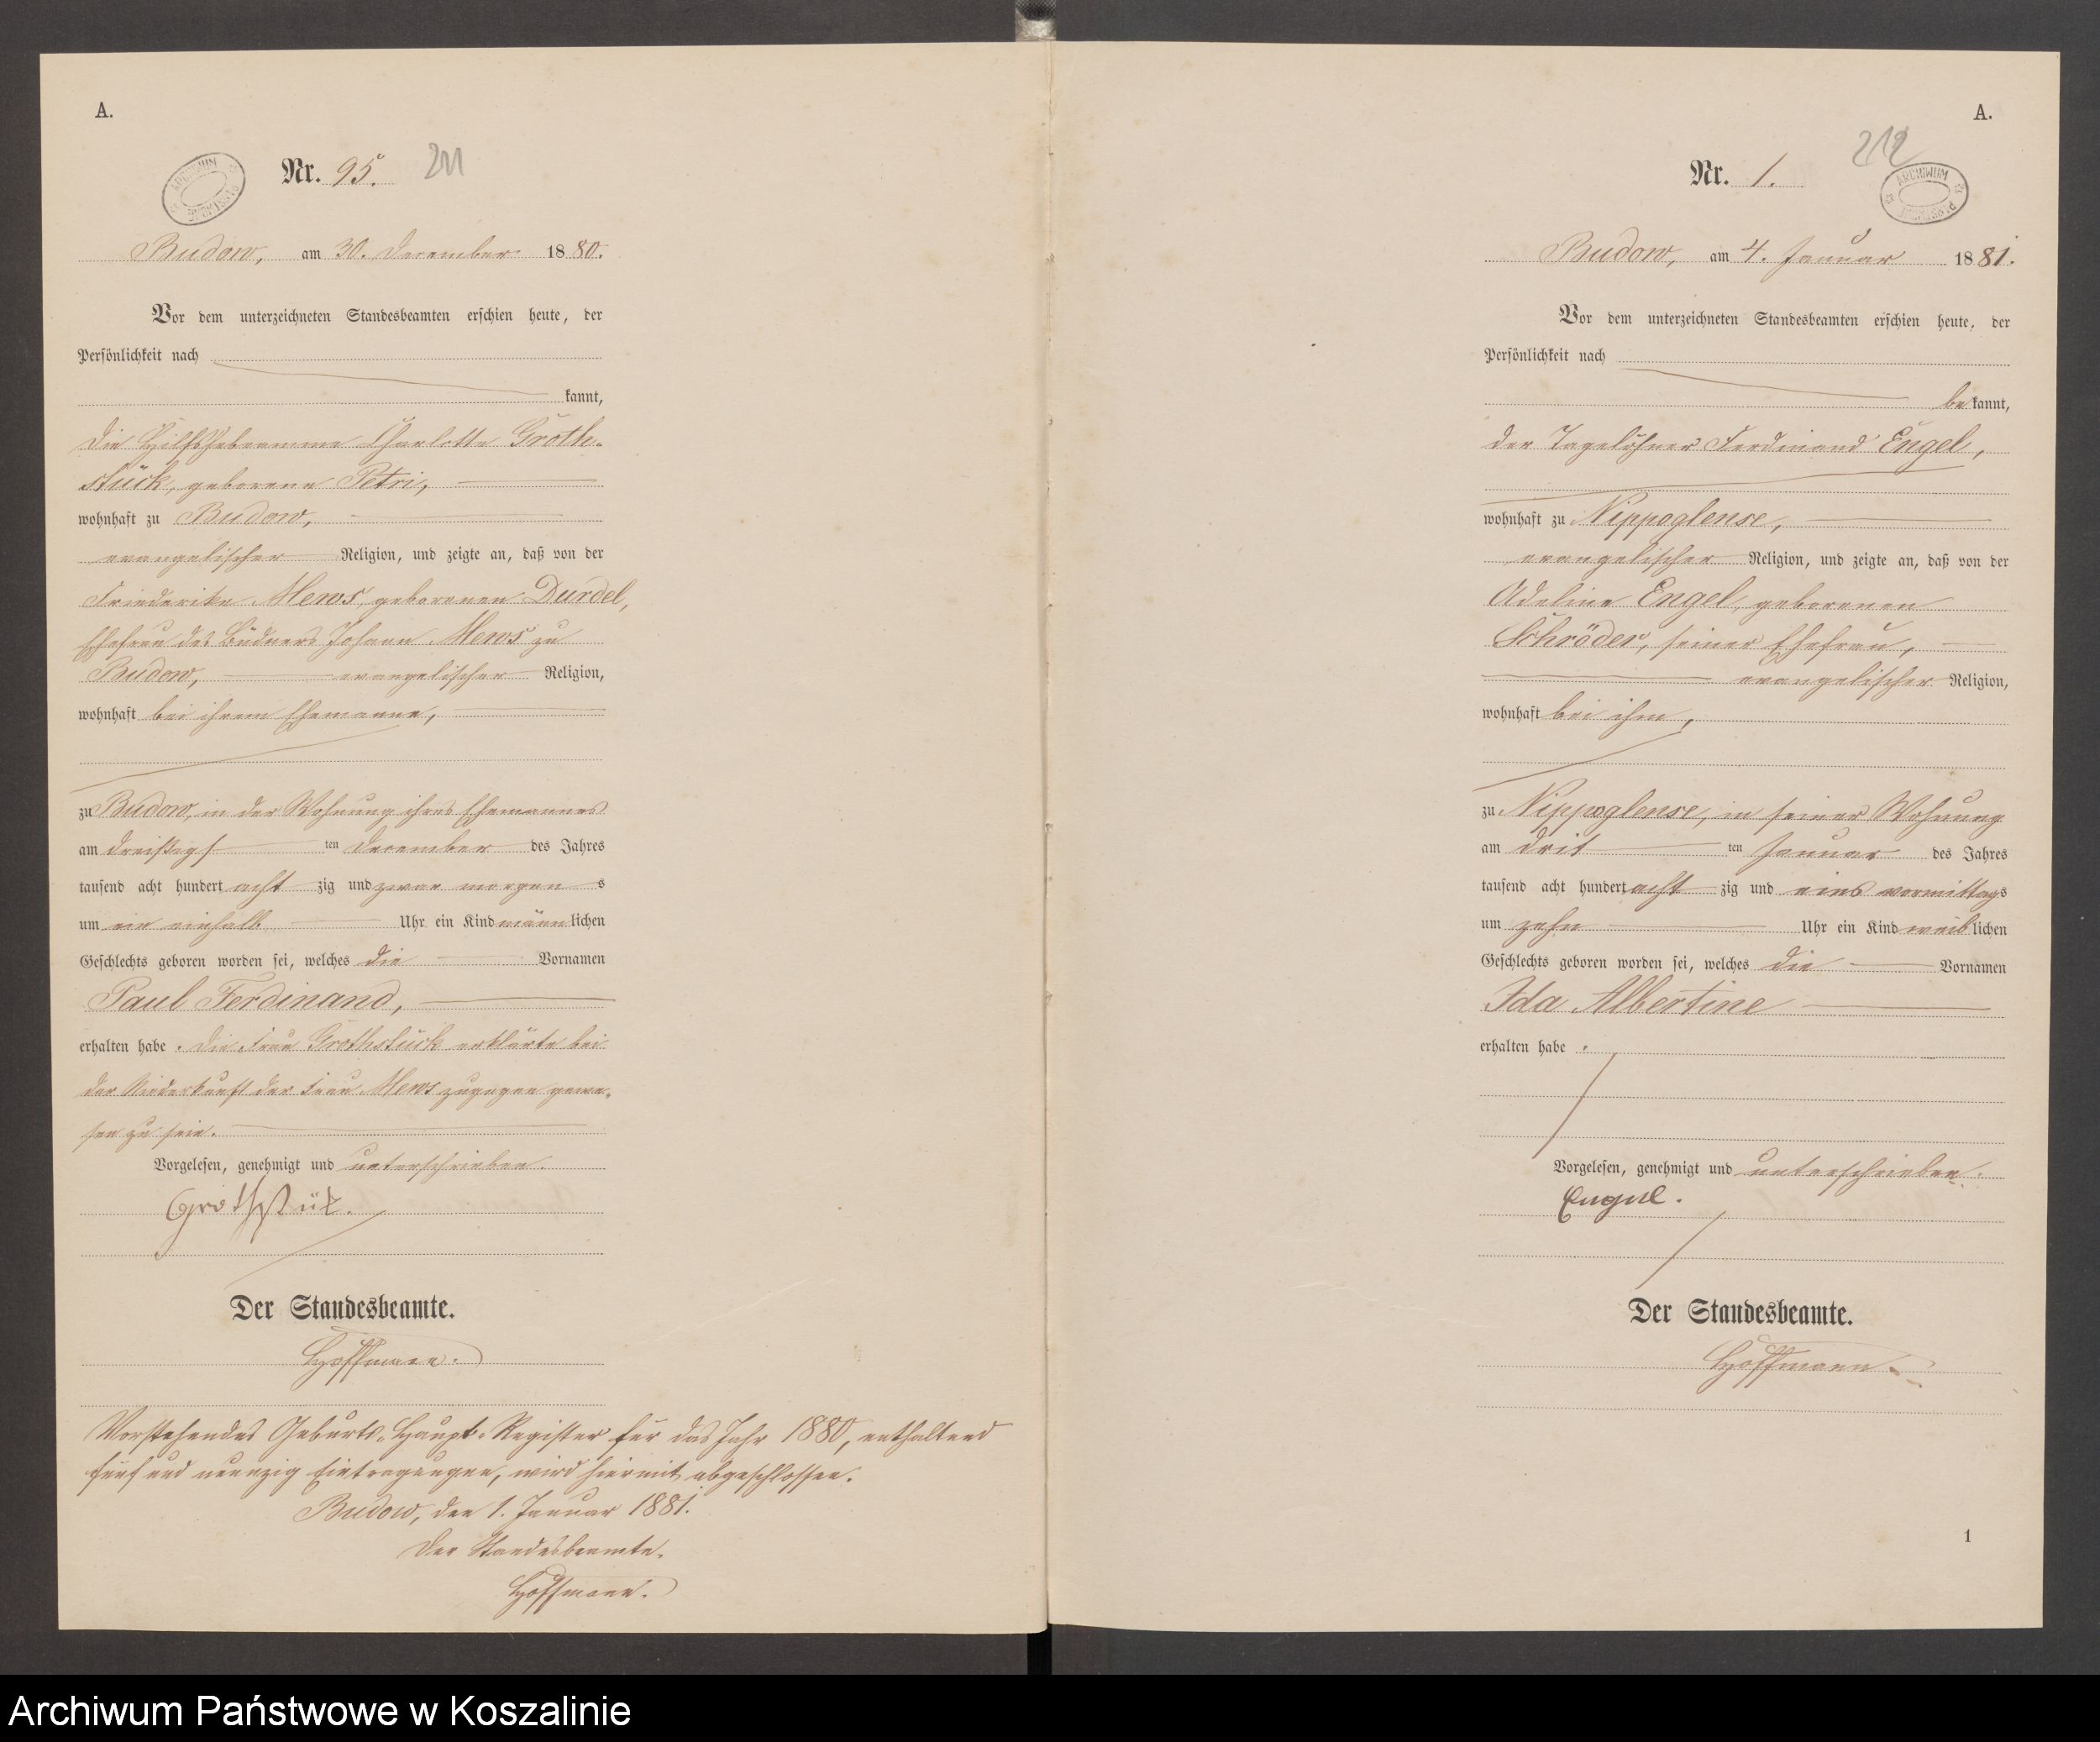 A.
Nr. 95. 211
ARCHIWUM PAŃSTWOWE
Budow, am 30. December 1880.
Vor dem unterzeichneten Standesbeamten erschien heute, der
Persönlichkeit nach
kannt,
die Hilfshebeamme Charlotte Groth-
stück, geborene Petri,
wohnhaft zu Budow,
evangelischer Religion, und zeigte an, daß von der
Friederike Mews, geborenen Durdel,
Ehefrau des Büdners Johann Mews zu
Budow, evangelischer Religion,
wohnhaft bei ihrem Ehemanne,
zu Budow, in der Wohnung ihres Ehemannes
am dreißigs ten December des Jahres
tausend acht hundert acht zig und zwar morgens
um ein einhalb Uhr ein Kind männlichen
Geschlechts geboren worden sei, welches die Vornamen
Paul Ferdinand,
erhalten habe. Die Frau Grothstück erklärte bei
der Niederkunft der Frau Mews zugegen gewe-
sen zu sein.
Vorgelesen, genehmigt und unterschrieben.
Grothstük.
Der Standesbeamte.
Hoffmann.
Vorstehendes Geburts-Haupt-Register für das Jahr 1880, enthaltend
fünf und neunzig Eintragungen, wird hiermit abgeschlossen.
Budow, den 1. Januar 1881.
Der Standesbeamte.
Hoffmann.
A.
Nr. 1. 212
ARCHIWUM PAŃSTWOWE
Budow, am 4. Januar 1881.
Vor dem unterzeichneten Standesbeamten erschien heute, der
Persönlichkeit nach
bekannt,
der Tagelöhner Ferdinand Engel,
wohnhaft zu Nippoglense,
evangelischer Religion, und zeigte an, daß von der
Adeline Engel, geborenen
Schröder, seiner Ehefrau,
evangelischer Religion,
wohnhaft bei ihm,
zu Nippoglense, in seiner Wohnung
am drit ten Januar des Jahres
tausend acht hundert acht zig und eins vormittags
um zehn Uhr ein Kind weiblichen
Geschlechts geboren worden sei, welches die Vornamen
Ida Albertine
erhalten habe.
Vorgelesen, genehmigt und unterschrieben.
Engel.
Der Standesbeamte.
Hoffmann.
1
Archiwum Państwowe w Koszalinie